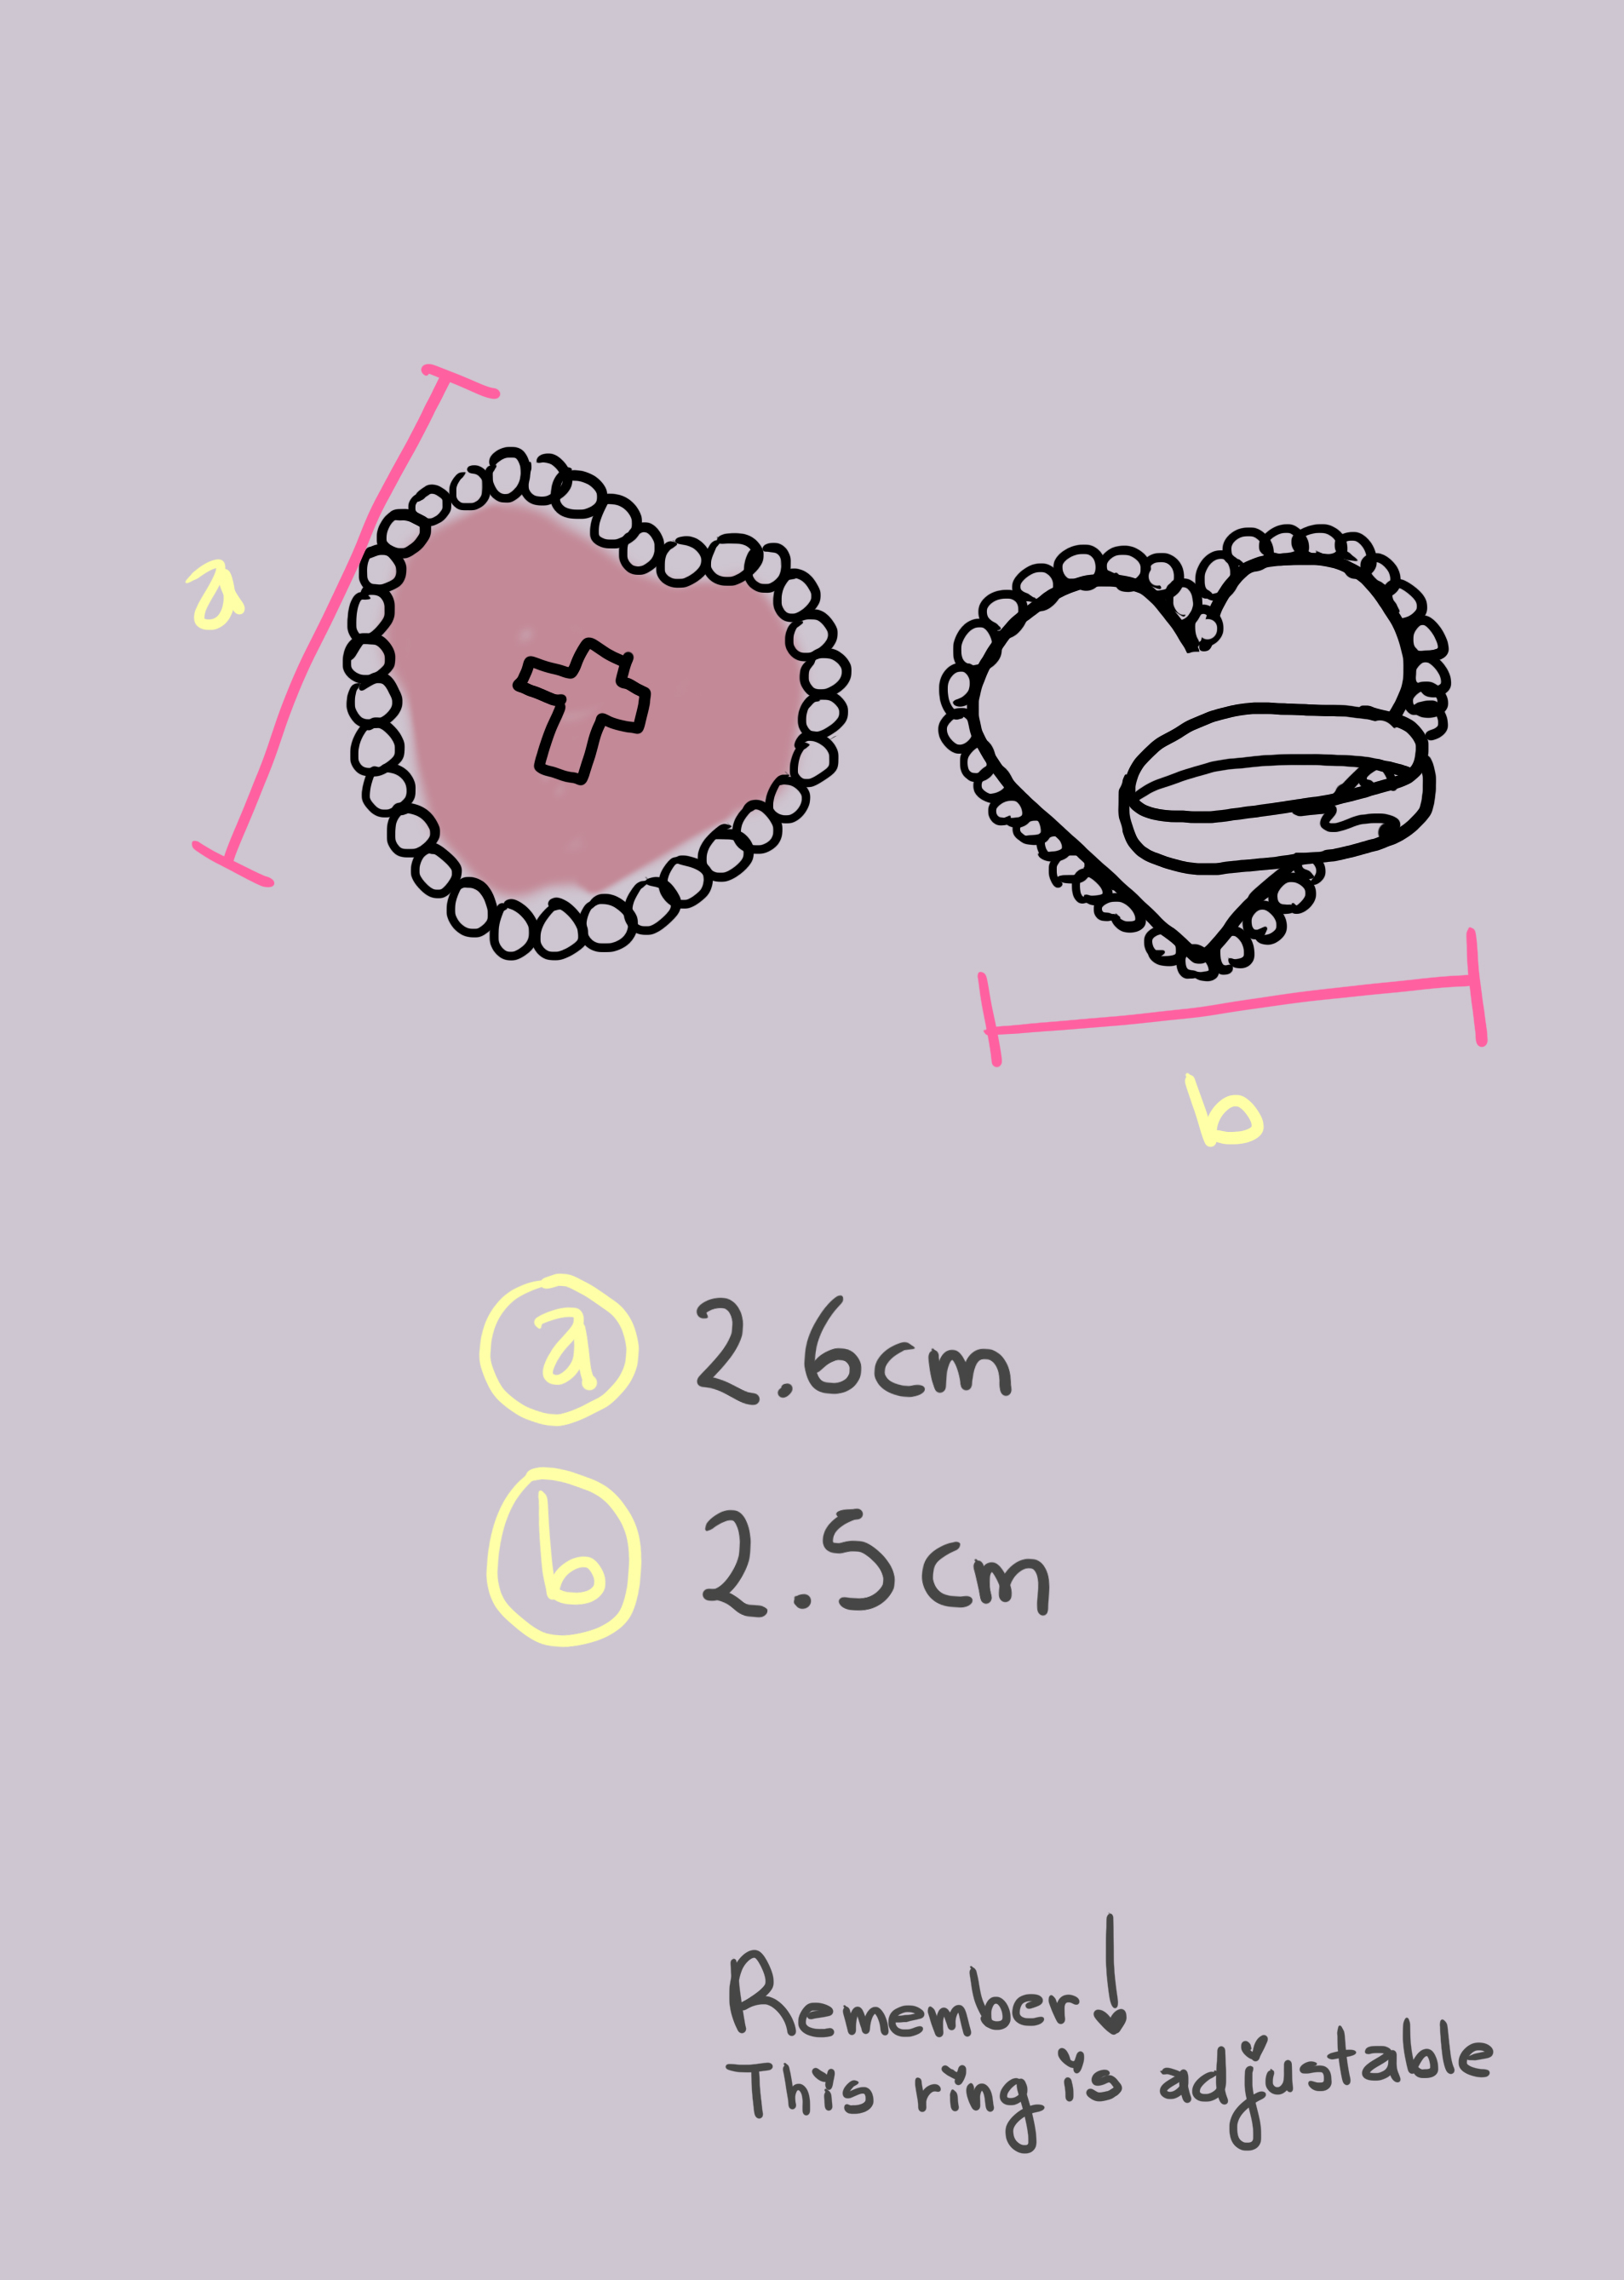 a
b
a 2.6cm
b 2.5cm
Remember
This ring is adjustable